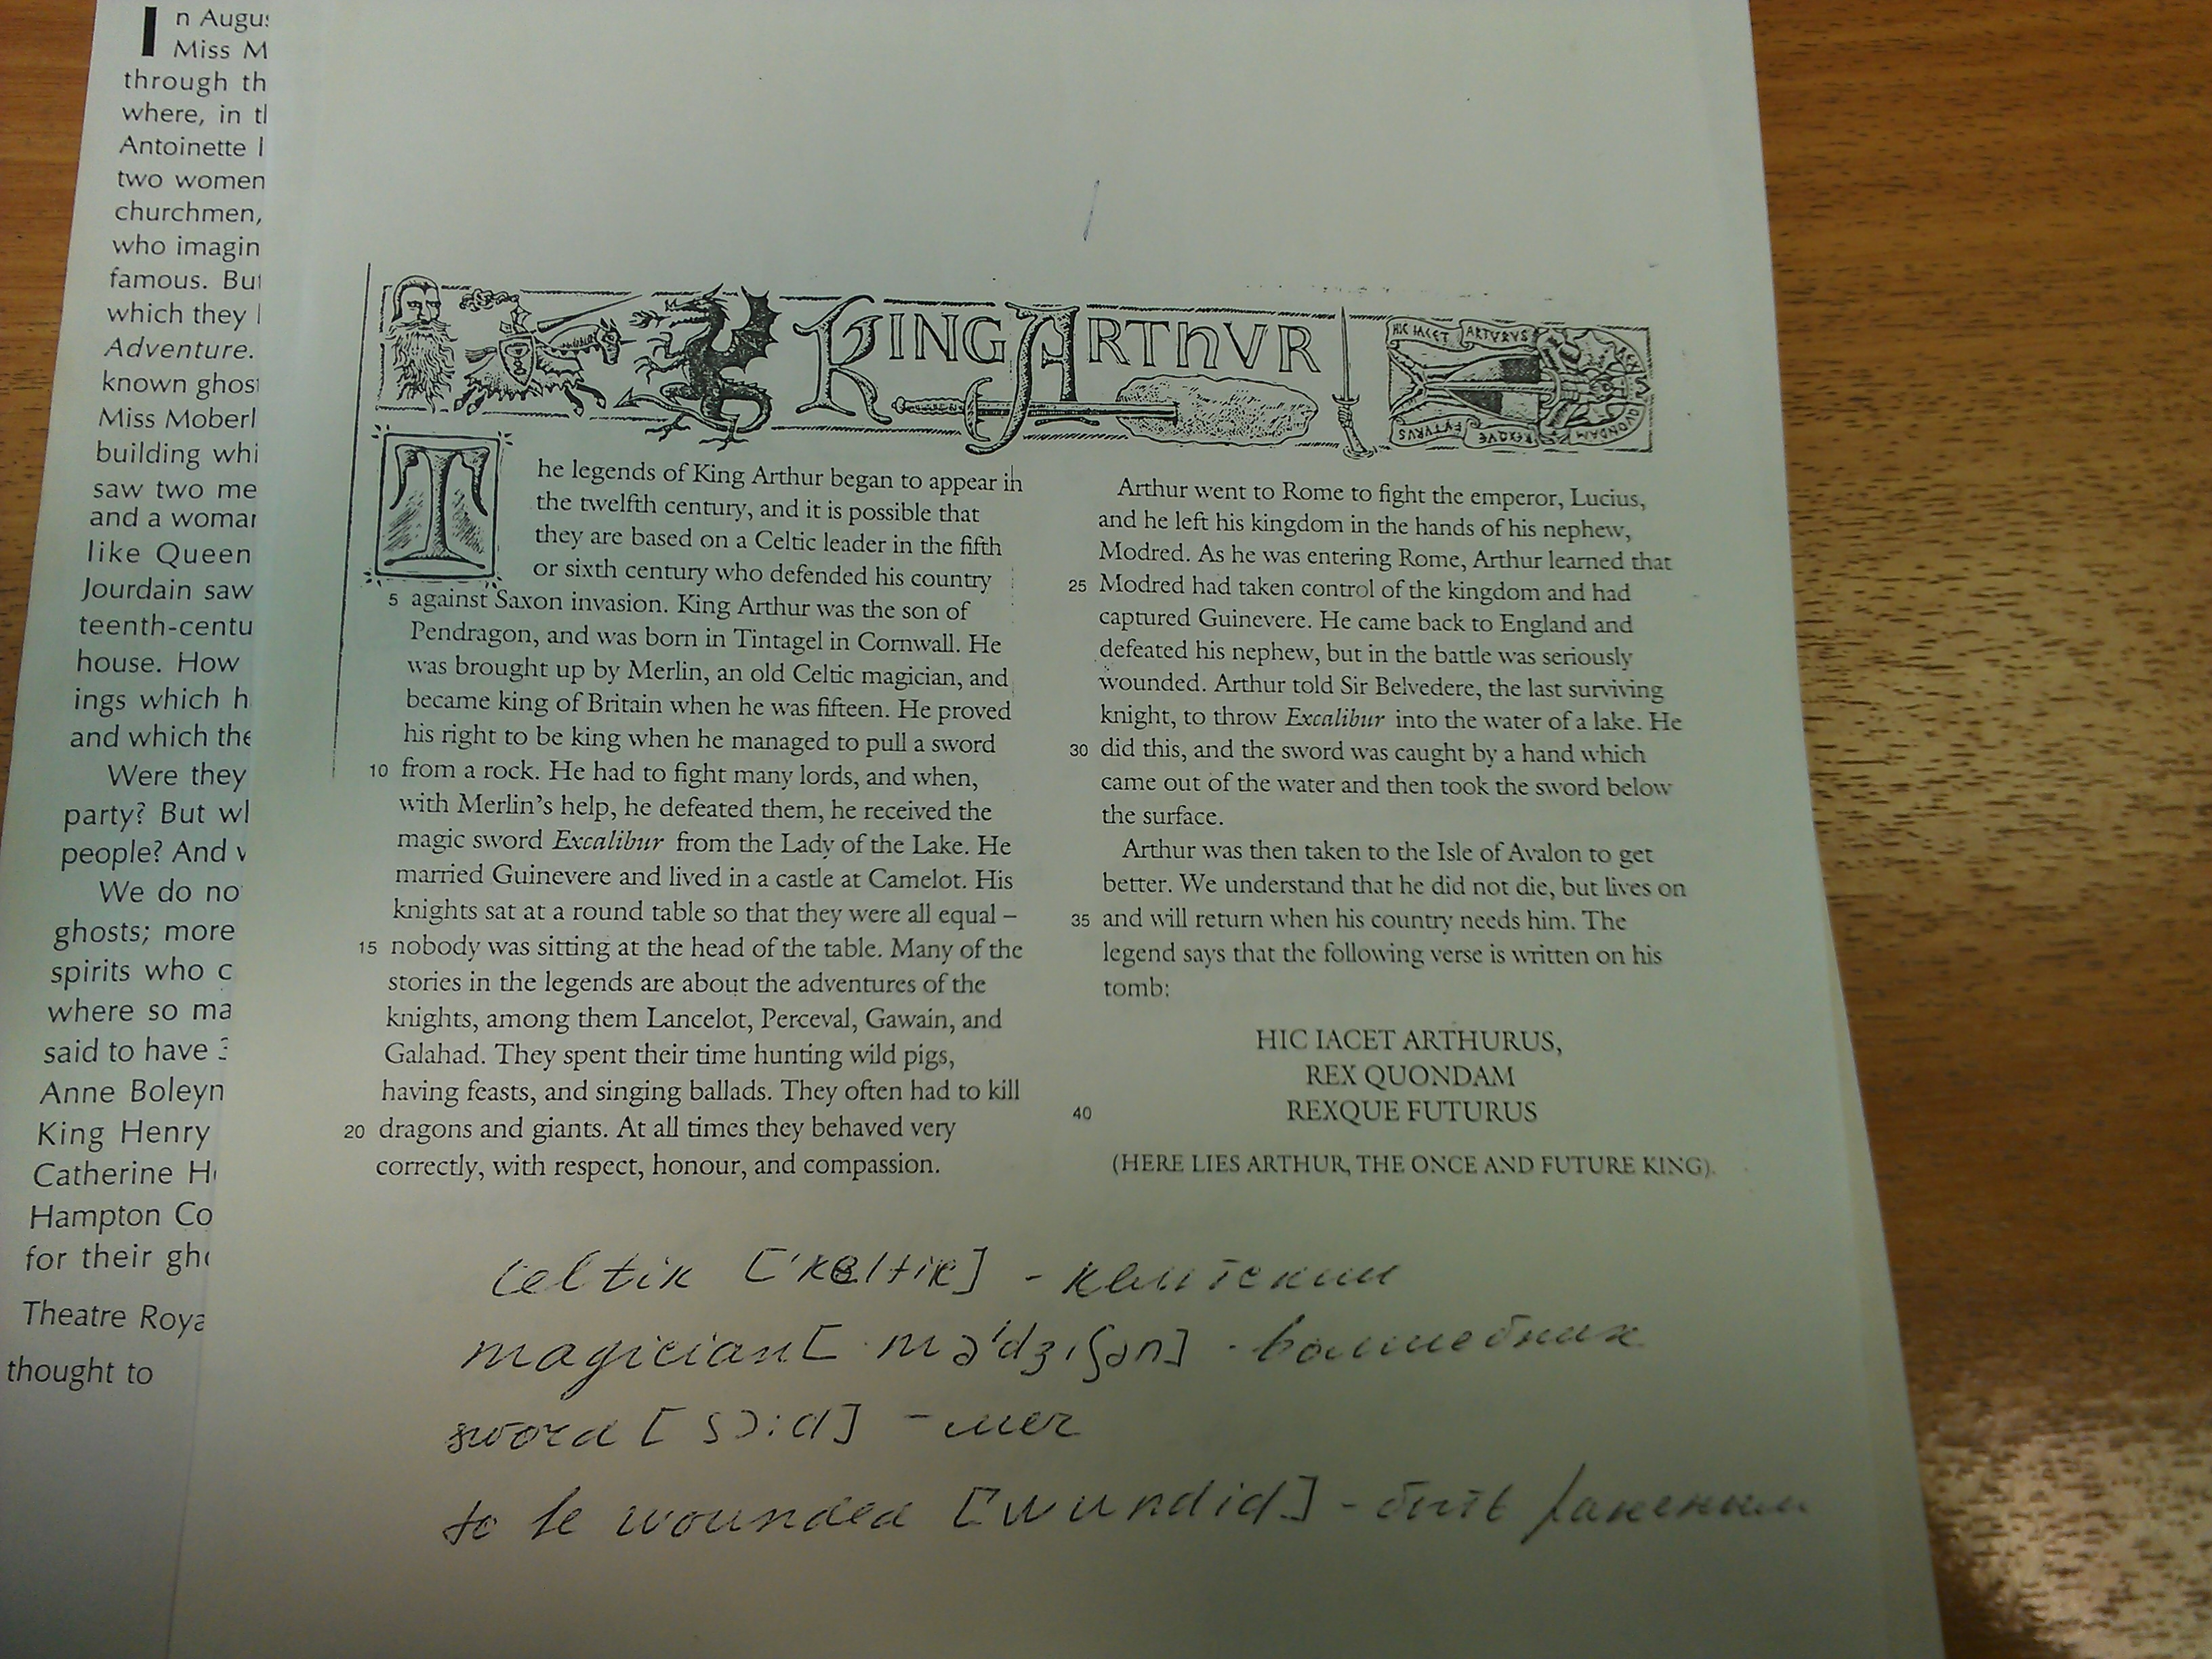 I
n Augus
Miss M
through th
where, in t
Antoinette
two women
churchmen,
who imagin
famous. But
which they
Adventure.
known ghost
Miss Moberl
building whi
saw two me
and a woman
like Queen
Jourdain saw
teenth-centu
house. How
ings which h
and which the
Were they
party? But wh
people? And
We do no
ghosts; more
spirits who c
where so ma
said to have 3
Anne Boleyn
King Henry
Catherine Ho
Hampton Co
for their gho
Theatre Roya
thought to
KING ARTHVR
HIC IACET ARTVRVS
REXQVE FVTVRVS
T
he legends of King Arthur began to appear in
the twelfth century, and it is possible that
they are based on a Celtic leader in the fifth
or sixth century who defended his country
5 against Saxon invasion. King Arthur was the son of
Pendragon, and was born in Tintagel in Cornwall. He
was brought up by Merlin, an old Celtic magician, and
became king of Britain when he was fifteen. He proved
his right to be king when he managed to pull a sword
10 from a rock. He had to fight many lords, and when,
with Merlin's help, he defeated them, he received the
magic sword Excalibur from the Lady of the Lake. He
married Guinevere and lived in a castle at Camelot. His
knights sat at a round table so that they were all equal –
15 nobody was sitting at the head of the table. Many of the
stories in the legends are about the adventures of the
knights, among them Lancelot, Perceval, Gawain, and
Galahad. They spent their time hunting wild pigs,
having feasts, and singing ballads. They often had to kill
20 dragons and giants. At all times they behaved very
correctly, with respect, honour, and compassion.
Arthur went to Rome to fight the emperor, Lucius,
and he left his kingdom in the hands of his nephew,
Modred. As he was entering Rome, Arthur learned that
25 Modred had taken control of the kingdom and had
captured Guinevere. He came back to England and
defeated his nephew, but in the battle was seriously
wounded. Arthur told Sir Belvedere, the last surviving
knight, to throw Excalibur into the water of a lake. He
30 did this, and the sword was caught by a hand which
came out of the water and then took the sword below
the surface.
Arthur was then taken to the Isle of Avalon to get
better. We understand that he did not die, but lives on
35 and will return when his country needs him. The
legend says that the following verse is written on his
tomb:
HIC IACET ARTHURUS,
REX QUONDAM
40 REXQUE FUTURUS
(HERE LIES ARTHUR, THE ONCE AND FUTURE KING).
Celtik ['keltik] - кельтский
magician [mə'dʒıʃən] - волшебник
sword [sɔ:d] - меч
to be wounded [wundid] - быть раненым